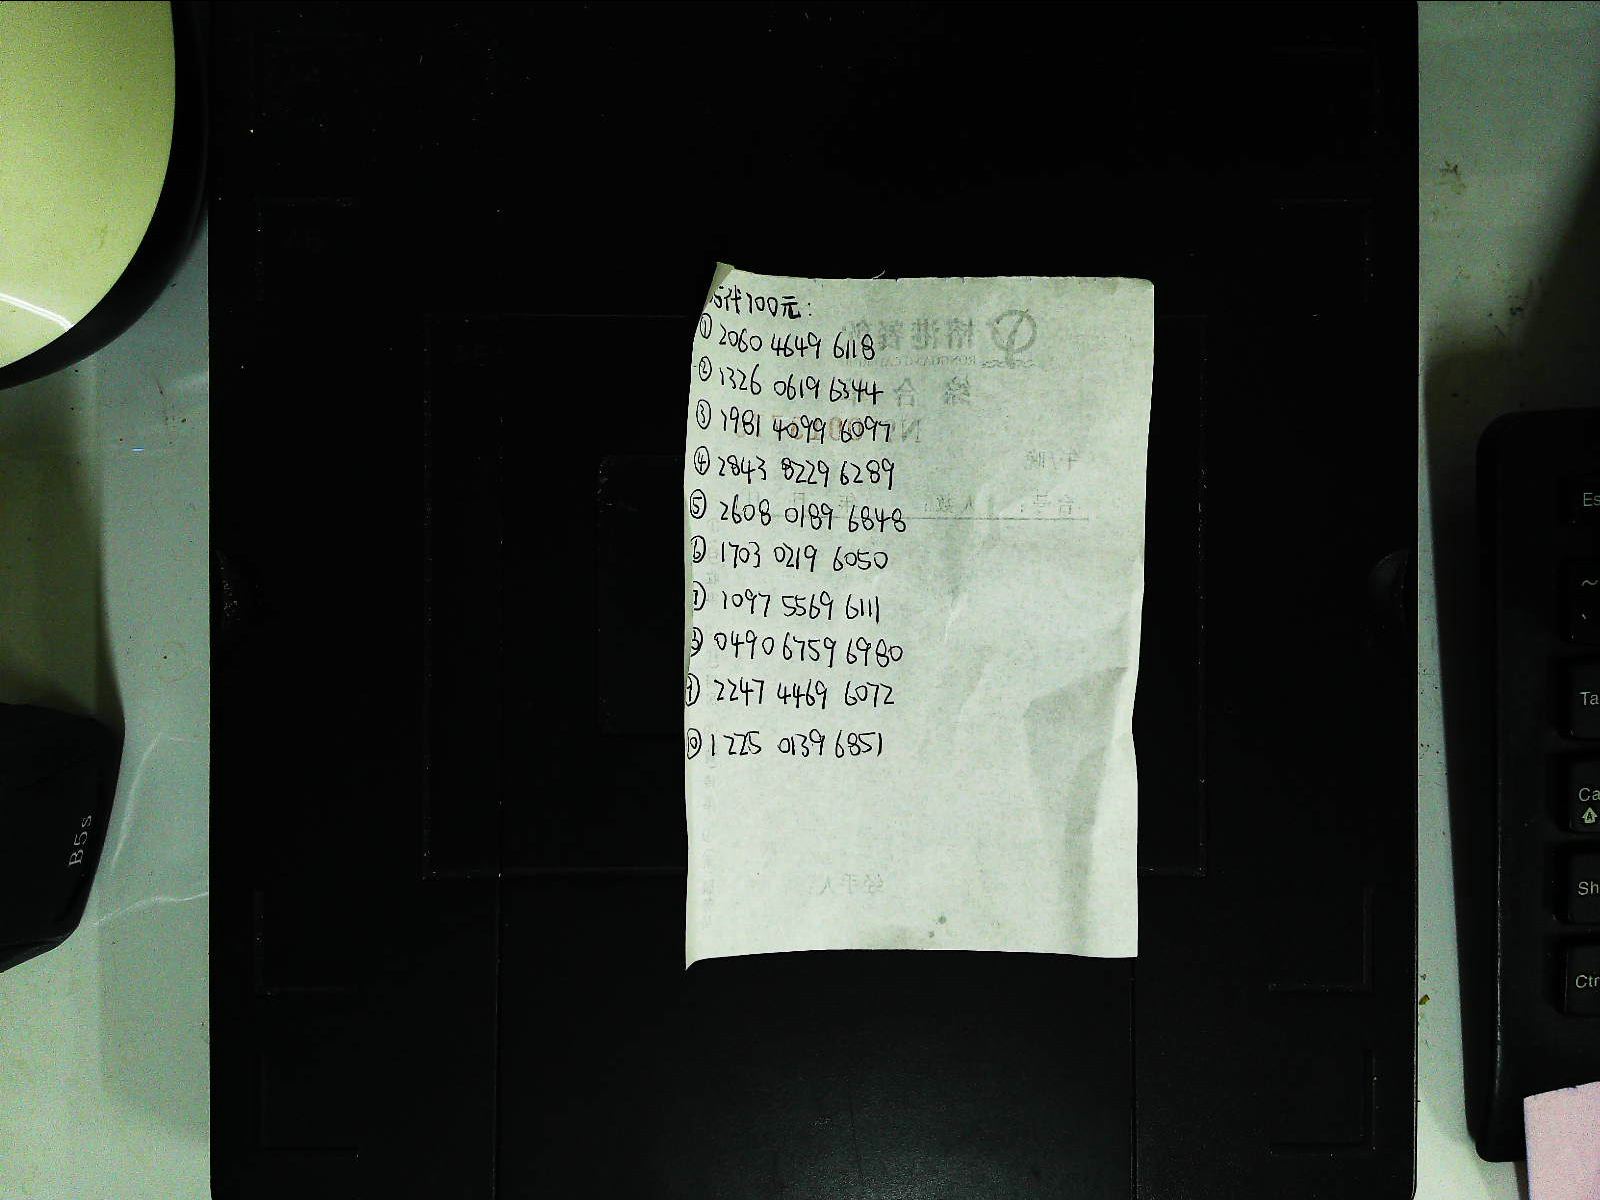 代100元:
① 2060 4649 6118
② 1326 0619 6344
③ 1981 4099 6097
④ 2843 8229 6289
⑤ 2608 0189 6848
⑥ 1703 0219 6050
⑦ 1097 5569 6111
⑧ 0490 6759 6980
⑨ 2247 4469 6072
⑩ 1225 0139 6851
B5s
Es
Ta
Ca
Sh
Ctr